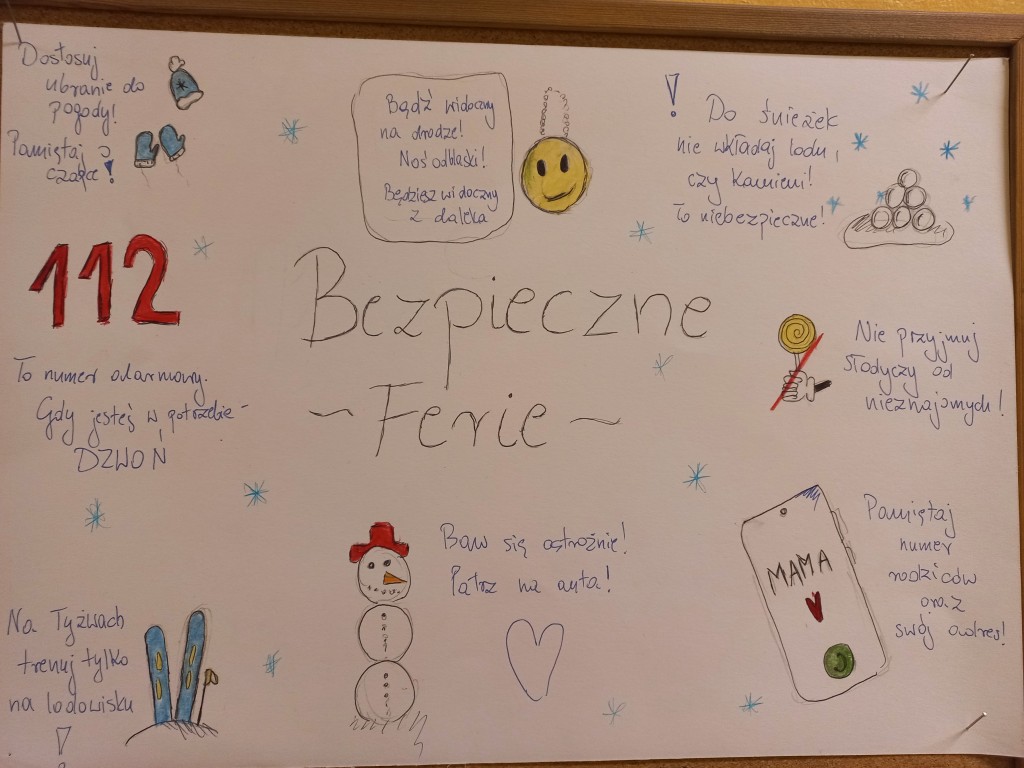 Dostosuj
ubranie do
pogody!
Pamiętaj o
czapce!
Bądź widoczny
na drodze!
Noś odblaski!
Będziesz widoczny
z daleka
! Do śnieżek
nie wkładaj lodu,
czy kamieni!
To niebezpieczne!
112
To numer alarmowy.
Gdy jesteś w potrzebie -
DZWOŃ
Bezpieczne
~ Ferie ~
Nie przyjmuj
słodyczy od
nieznajomych!
Baw się ostrożnie!
Patrz na auta!
MAMA
Pamiętaj
numer
rodziców
oraz
swój adres!
Na łyżwach
trenuj tylko
na lodowisku
!